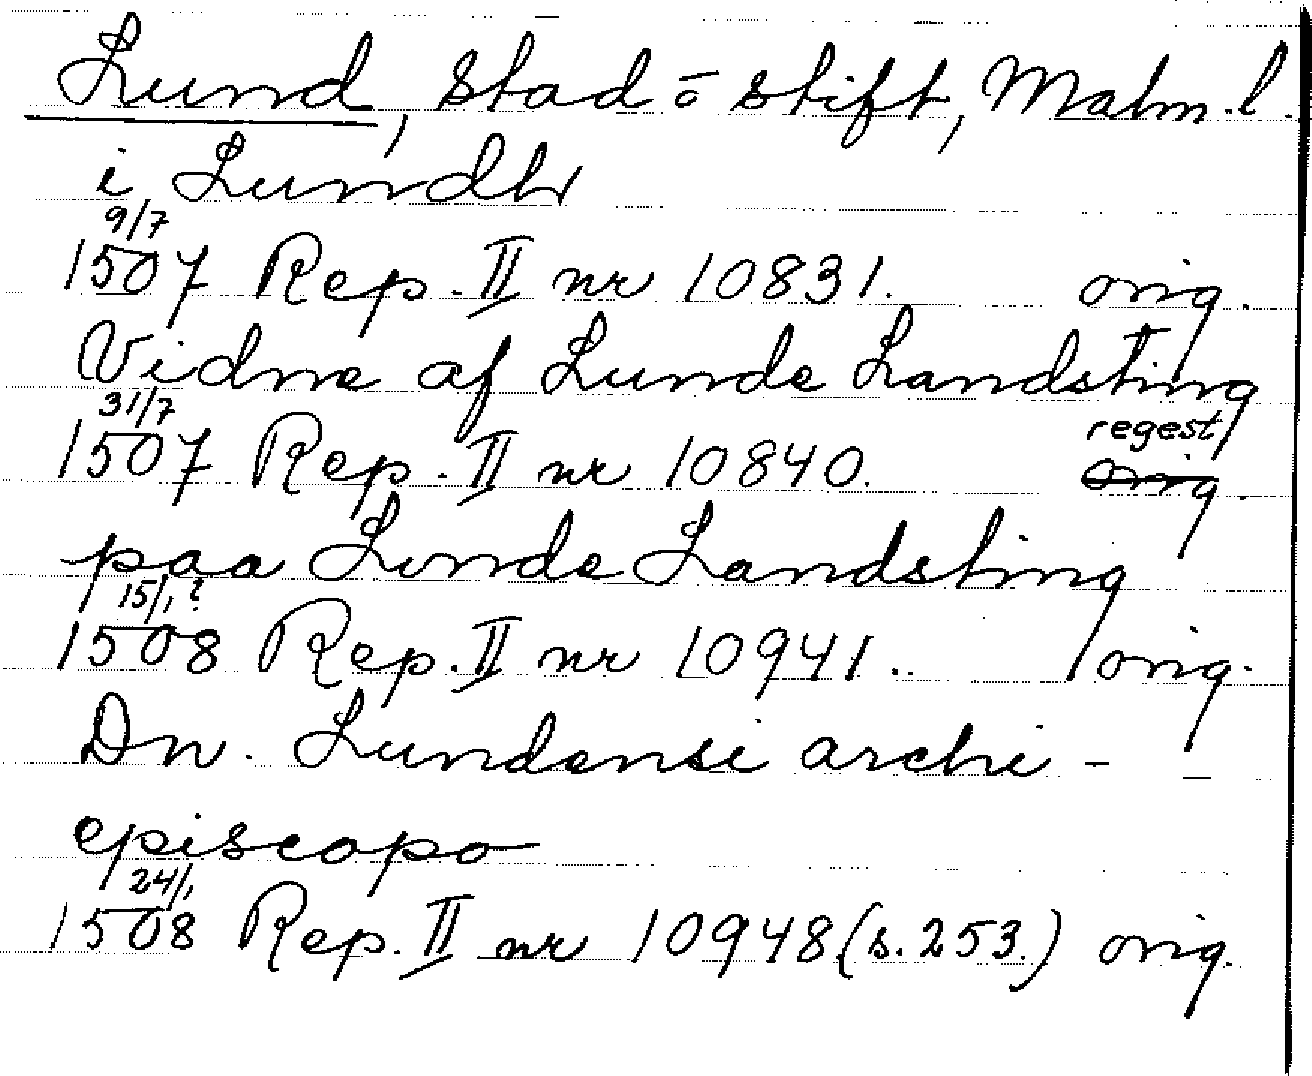 Lund, stad o stift, Malm. l.
i Lundh
9/7
1507 Rep. II nr 10831. orig.
Vidne af Lunde Landsting
31/7 regest
1507 Rep. II nr 10840. orig.
paa Lunde Landsting
15/1 ?
1508 Rep. II nr 10941. orig.
Dn. Lundensi archi-
episcopo
24/1
1508 Rep. II nr 10948 (s. 253.) orig.